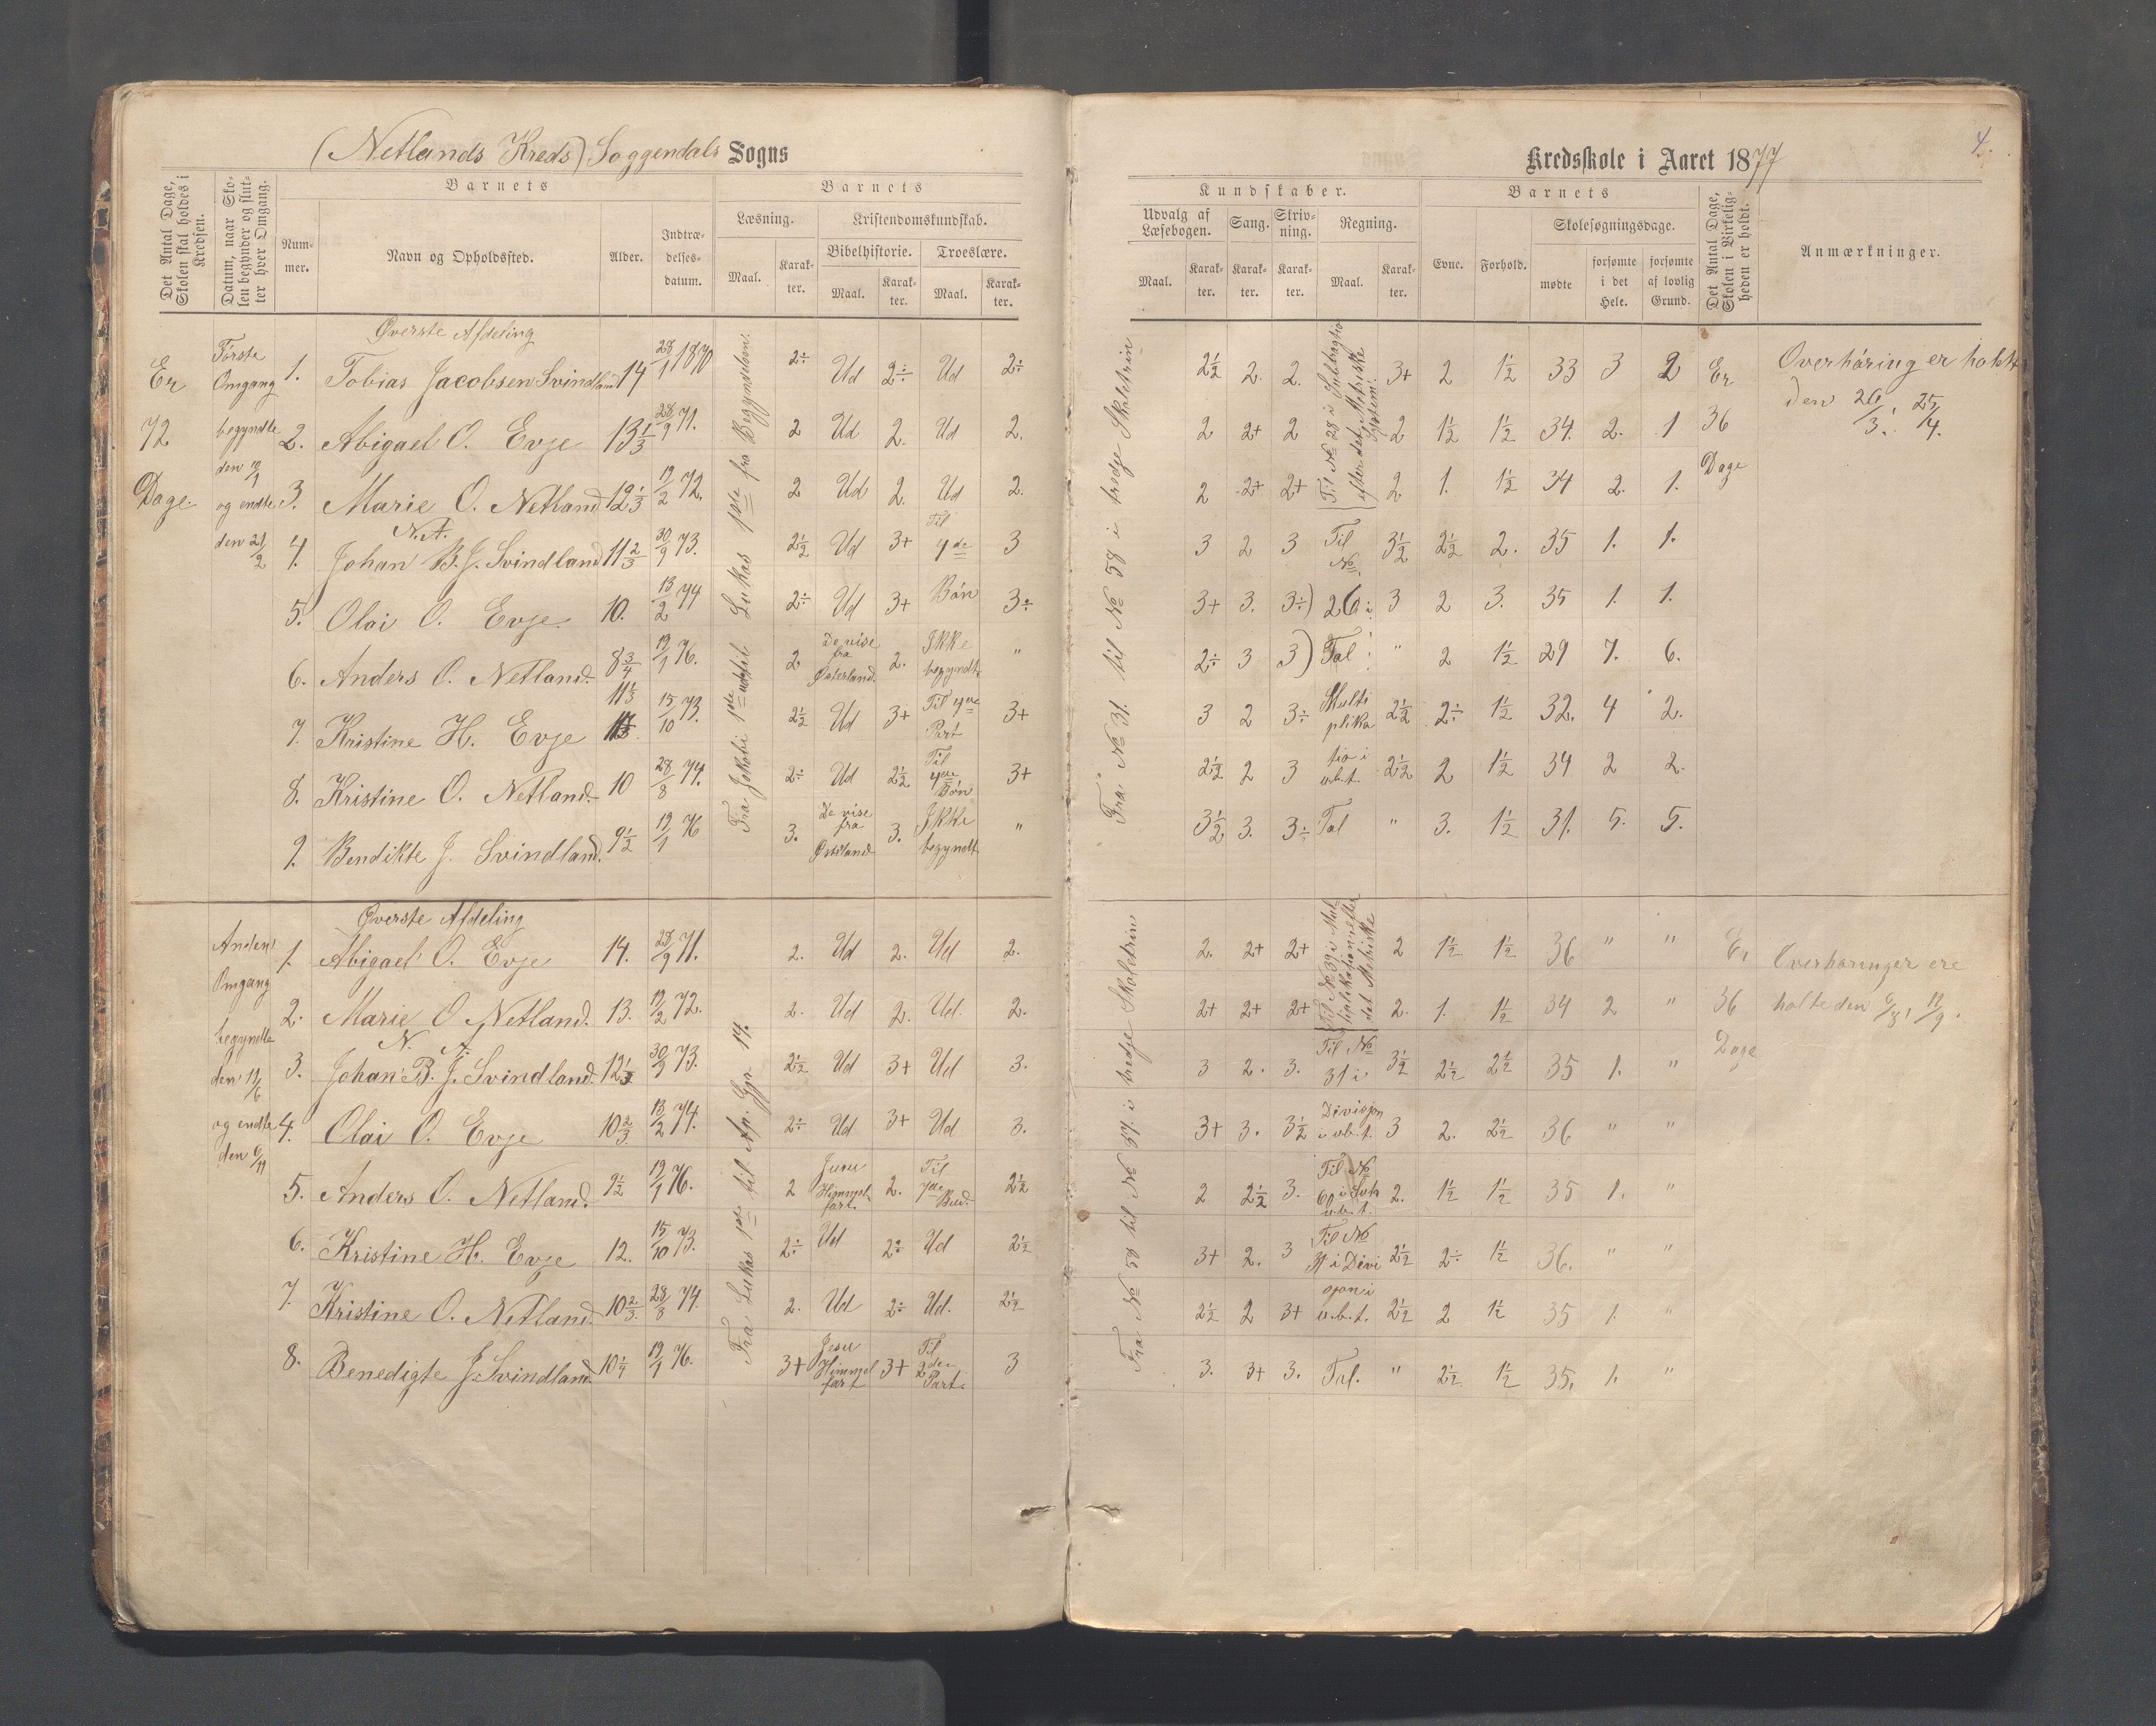 (Netlands Kreds) Soggendals Sogns
Kredsskole i Aaret 1877
4.
Det Antal Dage, Skolen skal holdes i Kredsen.
Datum, naar Skolen begynder og slutter hver Omgang.
Barnets
Nummer.
Navn og Opholdssted.
Alder.
Indtrædelsesdatum.
Barnets
Læsning.
Maal.
Karakter.
Kristendomskundskab.
Bibelhistorie.
Maal.
Karakter.
Troeslære.
Maal.
Karakter.
Kundskaber.
Udvalg af Læsebogen.
Maal.
Karakter.
Sang.
Karakter.
Skrivning.
Karakter.
Regning.
Maal.
Karakter.
Barnets
Evne.
Forhold.
Skolesøgningsdage.
mødte
forsømte i det Hele.
forsømte af lovlig Grund.
Det Antal Dage, Skolen i Virkeligheden er holdt.
Anmærkninger.
Er 72 Dage
Første Omgang begyndte den 10/1 og endte den 21/2
Øverste Afdeling
Fra Jakobi 1ste ud til Lukas 1ste fra Begyndelsen.
Fra No 31 til No 58 i tredje Skoletrin
Til No 28 i Subtragtion efter det Metriske System.
1. Tobias Jacobsen Svindland 14 28/1 1870 2÷ Ud 2÷ Ud 2÷ 2½ 2. 2. 3+ 2 1½ 33 3 2
2. Abigael O. Evje 13⅓ 28/9 71. 2 Ud 2. Ud 2. 2 2+ 2 2 1½ 1½ 34. 2. 1
3. Marie O. Netland 12⅓ 19/2 72. 2 Ud 2. Ud 2. 2 2+ 2+ 2 1. 1½ 34 2. 1.
N.A.
4. Johan B. J. Svindland 11⅔ 30/9 73. 2½ Ud 3+ Til 4de 3 3 2 3 Til No 3½ 2½ 2. 35 1. 1.
5. Olai O. Evje. 10. 13/2 74 2÷ Ud 3+ Bøn 3÷ 3+ 3. 3÷) 26 i 3 2 3. 35 1. 1.
6. Anders O. Netland. 8¾ 19/1 76. 2 De vise fra Østerland. 2. Ikke begyndt. " 2÷ 3 3) Tal " 2 1½ 29 7. 6.
7. Kristine H. Evje 11⅓ 15/10 73. 2½ Ud 3+ Til 4de Part 3+ 3 2 3÷ Multiplika 2½ 2÷ 1½ 32. 4 2.
8. Kristine O. Netland. 10 28/8 74. 2÷ Ud 2½ Til 4de Bøn 3+ 2½ 2 3 tio i u.b.t. 2½ 2 1½ 34 2 2.
9. Bendikte J. Svindland. 9½ 19/1 76 3. De vise fra Østerland 3. Ikke begyndt " 3½ 3. 3÷ Tal " 3. 1½ 31. 5. 5.
Er 36 Dage
Overhøring er holdt den 26/3. 25/4.
Anden Omgang begyndte den 11/6 og endte den 6/11
Øverste Afdeling
Fra Lukas 1ste til Ap. Gjr. 14.
Fra No 58 til No 37 i tredje Skoletrin
Til No 39 i Multiplikation efter det Metriske
1. Abigael O. Evje 14. 28/9 71. 2. Ud 2. Ud 2. 2. 2+ 2+ 2 1½ 1½ 36 " "
2. Marie O Netland. 13. 19/2 72. 2. Ud 2. Ud. 2. 2+ 2+ 2+ 2. 1. 1½ 34 2 "
N. A.
3. Johan B. J. Svindland. 12⅓ 30/9 73. 2½ Ud 3+ Ud 3. 3 2. 3. Til No 31 i 3½ 2½ 2½ 35 1. "
4. Olai O. Evje 10⅔ 13/2 74. 2÷ Ud 3+ Ud 3. 3+ 3. 3½ Divisjon i u.b.t. 3 2. 2½ 36 " "
5. Anders O. Netland. 9½ 19/1 76. 2 Jesu Himmelfart. 2. Til 7de Bud. 2½ 2 2½ 3. Til No 60 i Sub u.b.t. 2. 1½ 1½ 35 1. "
6. Kristine H. Evje 12. 15/10 73. 2÷ Ud 2÷ Ud 2½ 3+ 2. 3 Til No 31 i Divi 2½ 2÷ 1½ 36. " "
7. Kristine O. Netland. 10⅔ 28/8 74. 2. Ud 2÷ Ud. 2½ 2½ 2 3+ sjon i u.b.t. 2½ 2 1½ 35 1. "
8. Benedigte J. Svindland. 10¼ 19/1 76. 3+ Jesu Himmelfart 3+ Til 2den Part. 3 3. 3+ 3. Tal. " 2½ 1½ 35. 1. "
Er 36 Dage
Overhøringer ere holte den 6/8, 11/9.